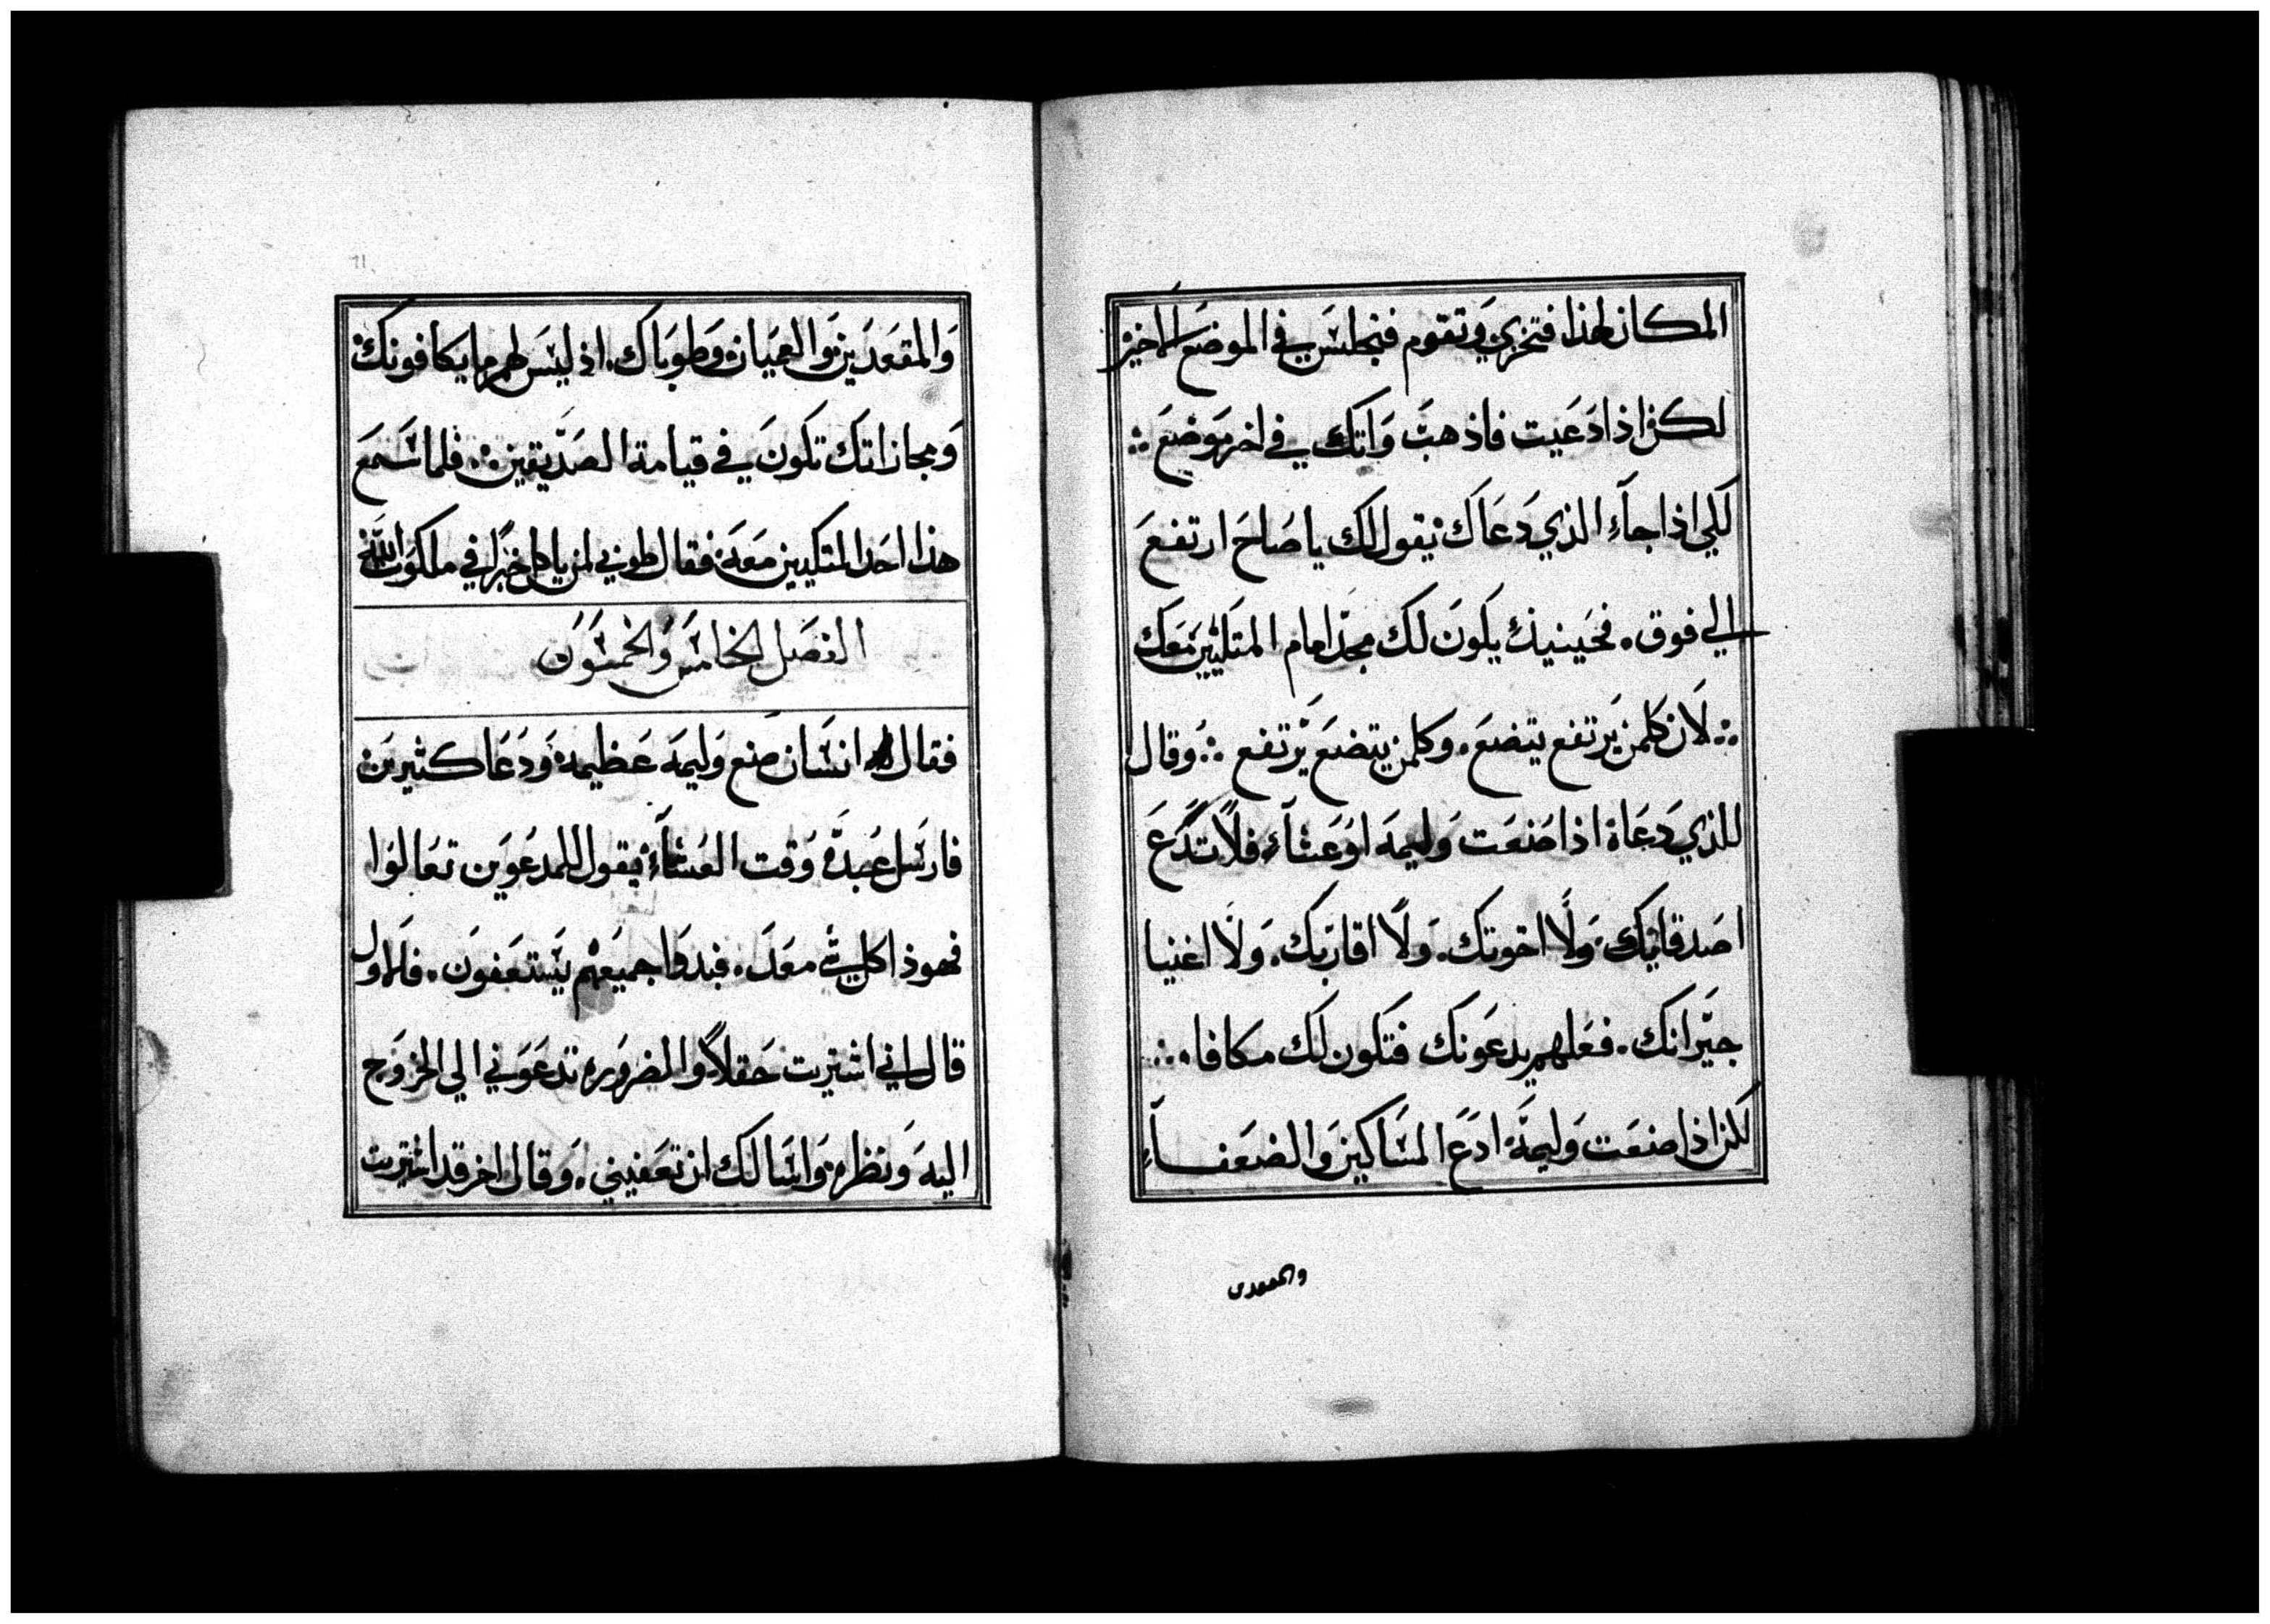 المكان لهذا فتخزي وتقوم فتجلس في الموضع الاخير
لكن اذا دعيت فاذهب واتك في اخر موضع ∴
لكي اذا جآء الذي دعاك يقول لك يا صاحَ ارتفع
الي فوق. فحينيذٍ يكون لك مجدًا امام المتكيين معك
∴ لان كلمن يرتفع يتضع. وكلمن يتضع يرتفع ∴ وقال
للذي دعاه اذا صنعت وليمه او عشآء فلا تدع
اصدقايك. ولا اخوتك. ولا اقاربك. ولا اغنيا
جيرانك. فعلهم يدعونك فتكون لك مكافاه ∴
لكن اذا صنعت وليمه ادع المساكين والضعفآء
والمقعدين
والمقعدين والعميان وطوباك. اذ ليس لهم ما يكافونك
ومجازاتك تكون في قيامة الصديقين ∴ فلما سمع
هذا احد المتكيين معه فقال طوبي لمن ياكل خبزًا في ملكوت الله
الفصل الخامس والخمسون
فقال له انسان صنع وليمه عظيمه ودعا كثيرين
فارسل عبده وقت العشآء يقول للمدعوين تعالوا
فهوذا كل شي معد. فبدوا جميعهم يستعفون. فالاول
قال اني اشتريت حقلاً والضروره تدعوني الي الخروج
اليه ونظره واسالك ان تعفيني. وقال اخر قد اشتريت